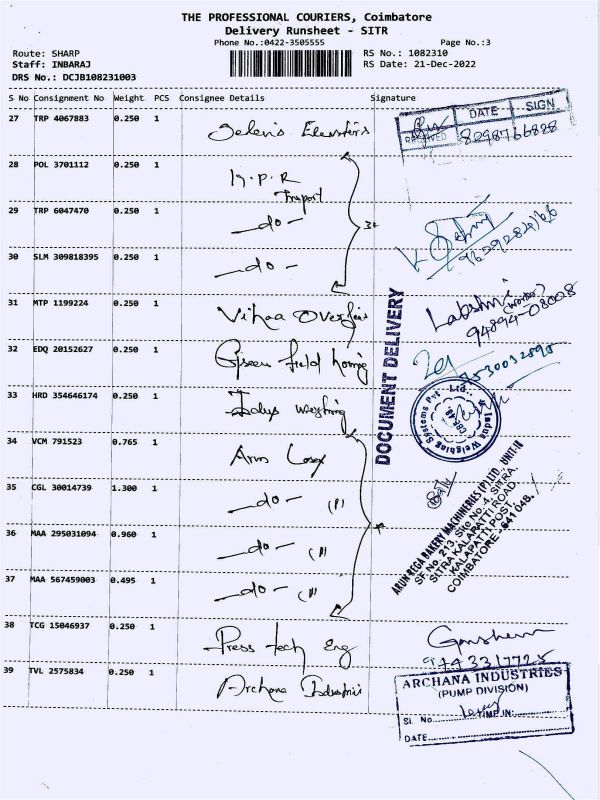 THE PROFESSIONAL COURIERS, Coimbatore
Delivery Runsheet - SITR
Phone No.:0422-3505555 Page No.:3
Route: SHARP RS No.: 1082310
Staff: INBARAJ RS Date: 21-Dec-2022
DRS No.: DCJB108231003
S No Consignment No Weight PCS Consignee Details Signature
27 TRP 4067883 0.250 1
DATE SIGN
RECEIVED 8298766828
28 POL 3701112 0.250 1
29 TRP 6047470 0.250 1 -do-
30 SLM 309818395 0.250 1 -do-
31 MTP 1199224 0.250 1 Vihaa
94894-08008
DOCUMENT DELIVERY
32 EDQ 20152627 0.250 1 Green field
33 HRD 354646174 0.250 1 Indus weighing
Indus Weighing Systems Pvt Ltd.,
34 VCM 791523 0.765 1 Arun
35 CGL 30014739 1.300 1 -do- (")
36 MAA 295031094 0.960 1 -do- (")
37 MAA 567459003 0.495 1 -do- (")
ARUN BEGA BAKERY MACHINERIES (P) LTD., UNIT-II
SF No. 213, Site No-4, SITRA,
SITRA KALAPATTI ROAD,
KALAPATTI POST,
COIMBATORE - 641 048.
38 TCG 15046937 0.250 1 Press tech Eng
39 TVL 2575834 0.250 1 Archana Industries
ARCHANA INDUSTRIES
(PUMP DIVISION)
Sl. No. TIME IN:
DATE